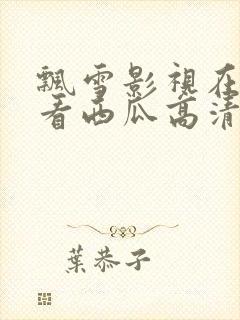 飄雪影視在
看西瓜高清
葉恭子